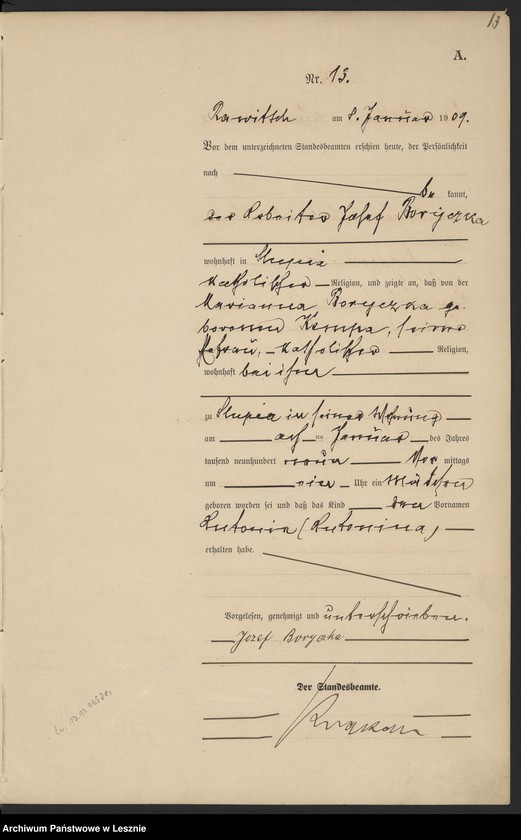 13
A.
Nr. 13.
Rawitsch am 8. Januar 1909.
Vor dem unterzeichneten Standesbeamten erschien heute, der Persönlichkeit
nach
be kannt,
der Arbeiter Josef Boryczka
wohnhaft in Slupia
katholischer Religion, und zeigte an, daß von der
Marianna Boryczka ge-
borenen Kempa, seiner
Ehefrau, katholischer Religion,
wohnhaft bei ihm
zu Slupia in seiner Wohnung
am acht ten Januar des Jahres
tausend neunhundert neun Vor mittags
um ein Uhr ein Mädchen
geboren worden sei und daß das Kind den Vornamen
Antonie (Antonina)
erhalten habe.
Vorgelesen, genehmigt und unterschrieben.
Jozef Boryczka
Der Standesbeamte.
Archiwum Państwowe w Lesznie